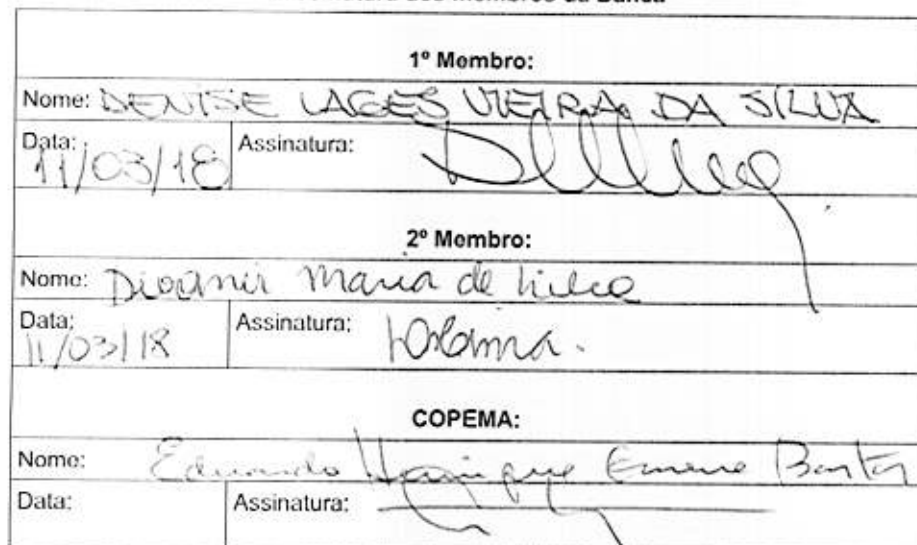 dos Membros da Banca
1º Membro:
Nome: DENISE LAGES VIEIRA DA SILVA
Data: 11/03/18 Assinatura:
2º Membro:
Nome: Maria de
Data: 11/03/18 Assinatura:
COPEMA:
Nome: Eduardo Henrique
Data: Assinatura: